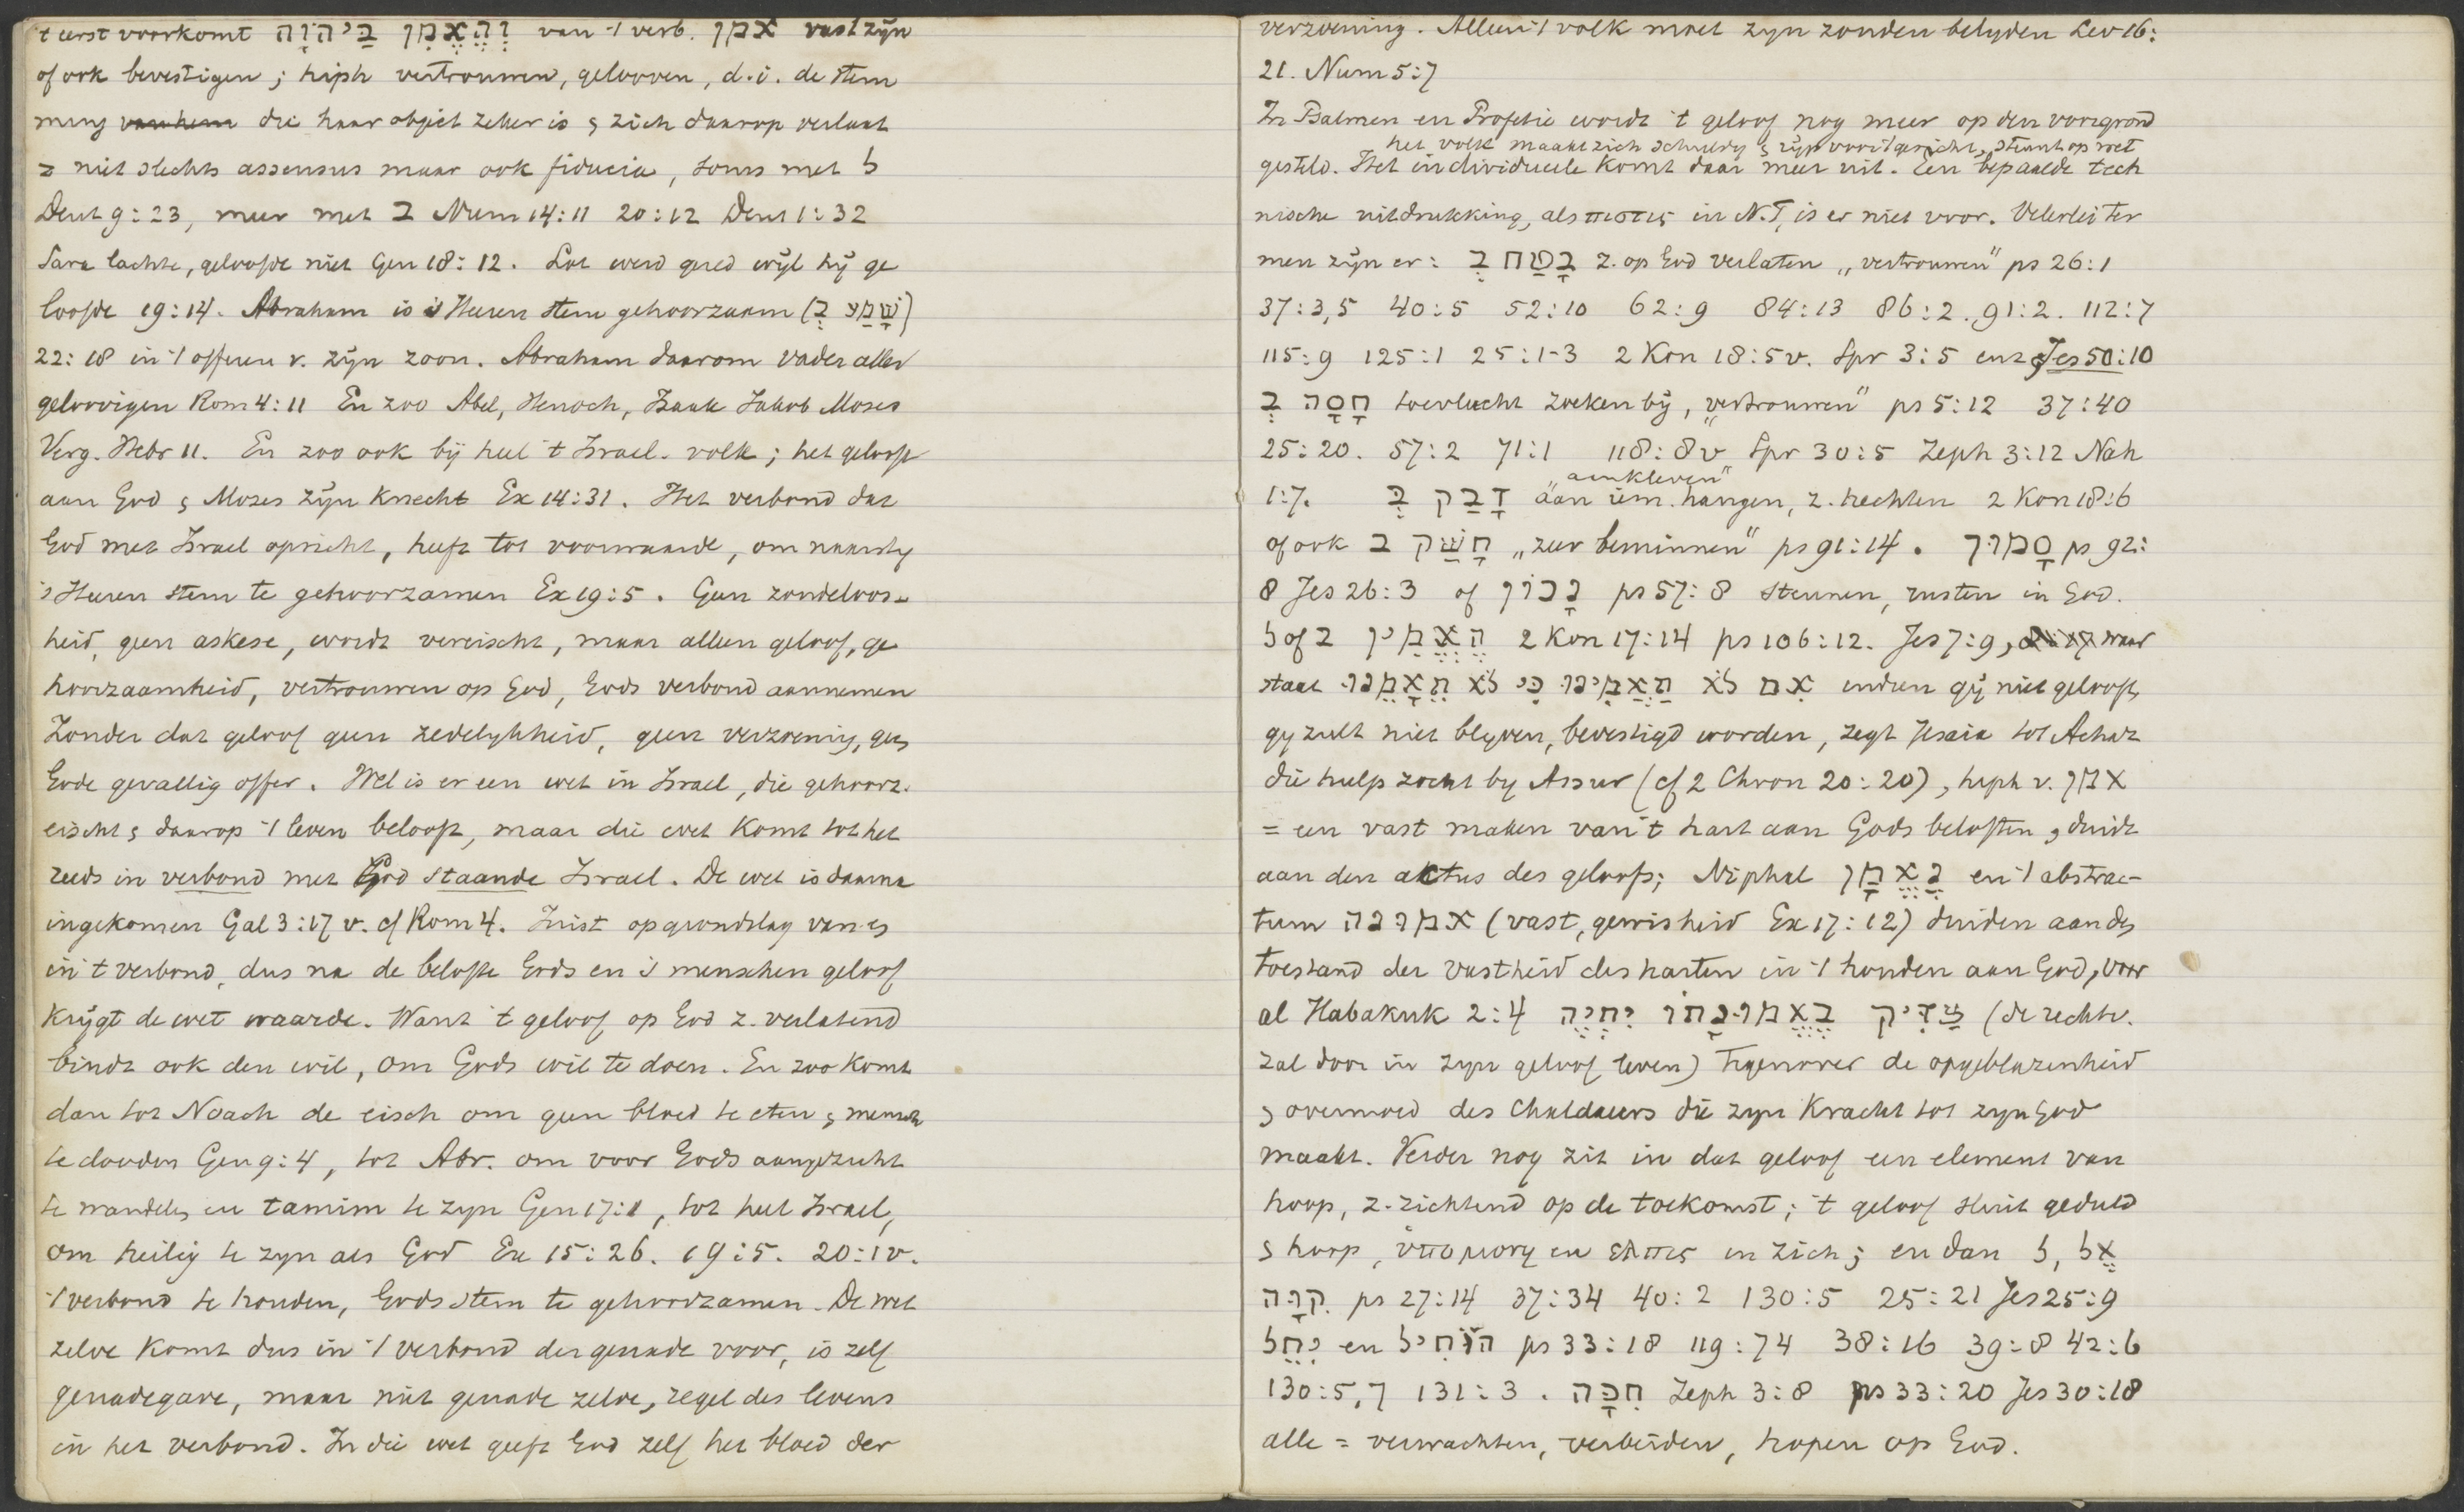 't eerst voorkomt וְהֶאֱמִן בַּיהוָֹה van 't verb. אמן vast zijn
of ook bevestigen; hiph vertrouwen, gelooven, d.i. de stem
ming van hem die haar object zeker is & zich daarop verlaat
= niet slechts assensus maar ook fiducia, soms met ל
Deut 9:23, meer met ב Num 14:11 20:12 Deut 1:32
Sara lachte, geloofde niet Gen 18:12. Lot werd gered wijl hij ge
loofde 19:14. Abraham is 's Heeren stem gehoorzaam (שָׁמַע בְּ)
22:18 in 't offeren v. zijn zoon. Abraham daarom vader aller
geloovigen Rom 4:11 En zoo Abel, Henoch, Izaak Jakob Moses
Verg. Hebr 11. En zoo ook bij heel 't Israel. volk; het gelooft
aan God & Moses zijn knecht Ex 14:31. Het verbond dat
God met Israel opricht, heeft tot voorwaarde, om naarstig
's Heeren stem te gehoorzamen Ex 19:5. Geen zondeloos-
heid, geen askese, wordt vereischt, maar alleen geloof, ge
hoorzaamheid, vertrouwen op God, Gods verbond aannemen
Zonder dat geloof geen zedelijkheid, geen verzoening, geen
Gode gevallig offer. Wel is er een wet in Israel, die gehoorz.
eischt & daarop 't leven belooft, maar die wet komt tot het
reeds in verbond met God staande Israel. De wet is daarna
ingekomen Gal 3:17 v. cf Rom 4. Juist op grondslag van en
in 't verbond, dus na de belofte Gods en 's menschen geloof
krijgt de wet waarde. Want 't geloof op God z. verlatend
bindt ook den wil, om Gods wil te doen. En zoo komt
dan tot Noach de eisch om geen bloed te eten & mensch
te dooden Gen 9:4, tot Abr. om voor Gods aangezicht
te wandelen en tamim te zijn Gen 17:1, tot heel Israel,
om heilig te zijn als God Ex 15:26. 19:5. 20:1v.
't verbond te houden, Gods stem te gehoorzamen. De wet
zelve komt dus in 't verbond der genade voor, is zelf
genadegave, maar niet genade zelve, regel des levens
in het verbond. In die wet geeft God zelf het bloed der
verzoening. Alleen 't volk moet zijn zonden belijden Lev 16:
21. Num 5:7
In Psalmen en Profetie wordt 't geloof nog meer op den voorgrond
het volk maakt zich schuldig & zijn steunt op wet
gesteld. Het individueele komt daar meer uit. Een bepaalde tech
nische uitdrukking, als πιστις in N.T, is er niet voor. Velerlei ter
men zijn er: בָּטַח בְּ z. op God verlaten „vertrouwen" ps 26:1
37:3,5 40:5 52:10 62:9 84:13 86:2. 91:2. 112:7
115:9 125:1 25:1-3 2 Kon 18:5v. Spr 3:5 enz Jes 50:10
חָסָה בְּ toevlucht zoeken bij, „vertrouwen" ps 5:12 37:40
25:20. 57:2 71:1 118:8v Spr 30:5 Zeph 3:12 Nah
„aankleven"
1:7. דָּבַק בְּ aan iem. hangen, z. hechten 2 Kon 18:6
of ook חָשַׁק ב „zeer beminnen" ps 91:14. סָמוּךְ ps 92:
8 Jes 26:3 of נָכוֹן ps 57:8 steunen, rusten in God.
הֶאֱמִין ב of ל 2 Kon 17:14 ps 106:12. Jes 7:9, waar
staat אִם לֹא תַאֲמִינוּ כִּי לֹא תֵאָמֵנוּ indien gij niet gelooft,
gij zult niet blijven, bevestigd worden, zegt Jesaia tot Achaz
die hulp zocht bij Assur (cf 2 Chron 20:20), hiph v. אמן
= een vast maken van 't hart aan Gods beloften, duidt
aan den aktus des geloofs; Niphal נֶאֱמָן en 't abstrac-
tum אמונה (vast, gewisheid Ex 17:12) duiden aan den
toestand der vastheid des harten in 't houden aan God, voor
al Habakuk 2:4 צַדִּיק בֶּאֱמוּנָתוֹ יִחְיֶה (de rechtv.
zal door in zijn geloof leven) Tegenover de opgeblazenheid
& overmoed des Chaldaeers die zijn kracht tot zijn God
maakt. Verder nog zit in dat geloof een element van
hoop, z. richtend op de toekomst; 't geloof sluit geduld
& hoop, ὑπομονη en ελπις in zich; en dan ל, אֶל
קִוָּה ps 27:14 37:34 40:2 130:5 25:21 Jes 25:9
יִחֵל en הוֹחִיל ps 33:18 119:74 38:16 39:8 42:6
130:5,7 131:3. חִכָּה Zeph 3:8 ps 33:20 Jes 30:18
alle = verwachten, verbeiden, hopen op God.